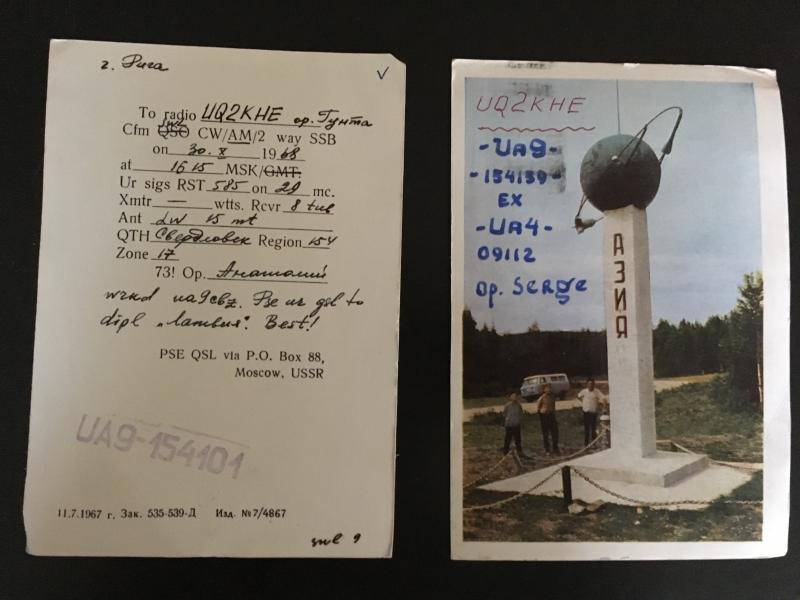 г. Рига
To radio UQ2KHE ор. Гунта
Cfm QSO SWL CW/AM/2 way SSB
on 30. X 1968
at 16 15 MSK/GMT.
Ur sigs RST 585 on 29 mc.
Xmtr — wtts. Rcvr 8 tub
Ant LW 15 mt
QTH Свердловск Region 154
Zone 17
73! Op. Анатолий
wrkd ua9cbz. Pse ur qsl to
dipl „Латвия". Best!
PSE QSL via P.O. Box 88,
Moscow, USSR
UA9-154101
11.7.1967 г. Зак. 535-539-Д Изд. №7/4867
swl 9
UQ2KHE
-UA9-
-154139-
EX
-UA4-
09112
op. SERGE
АЗИЯ